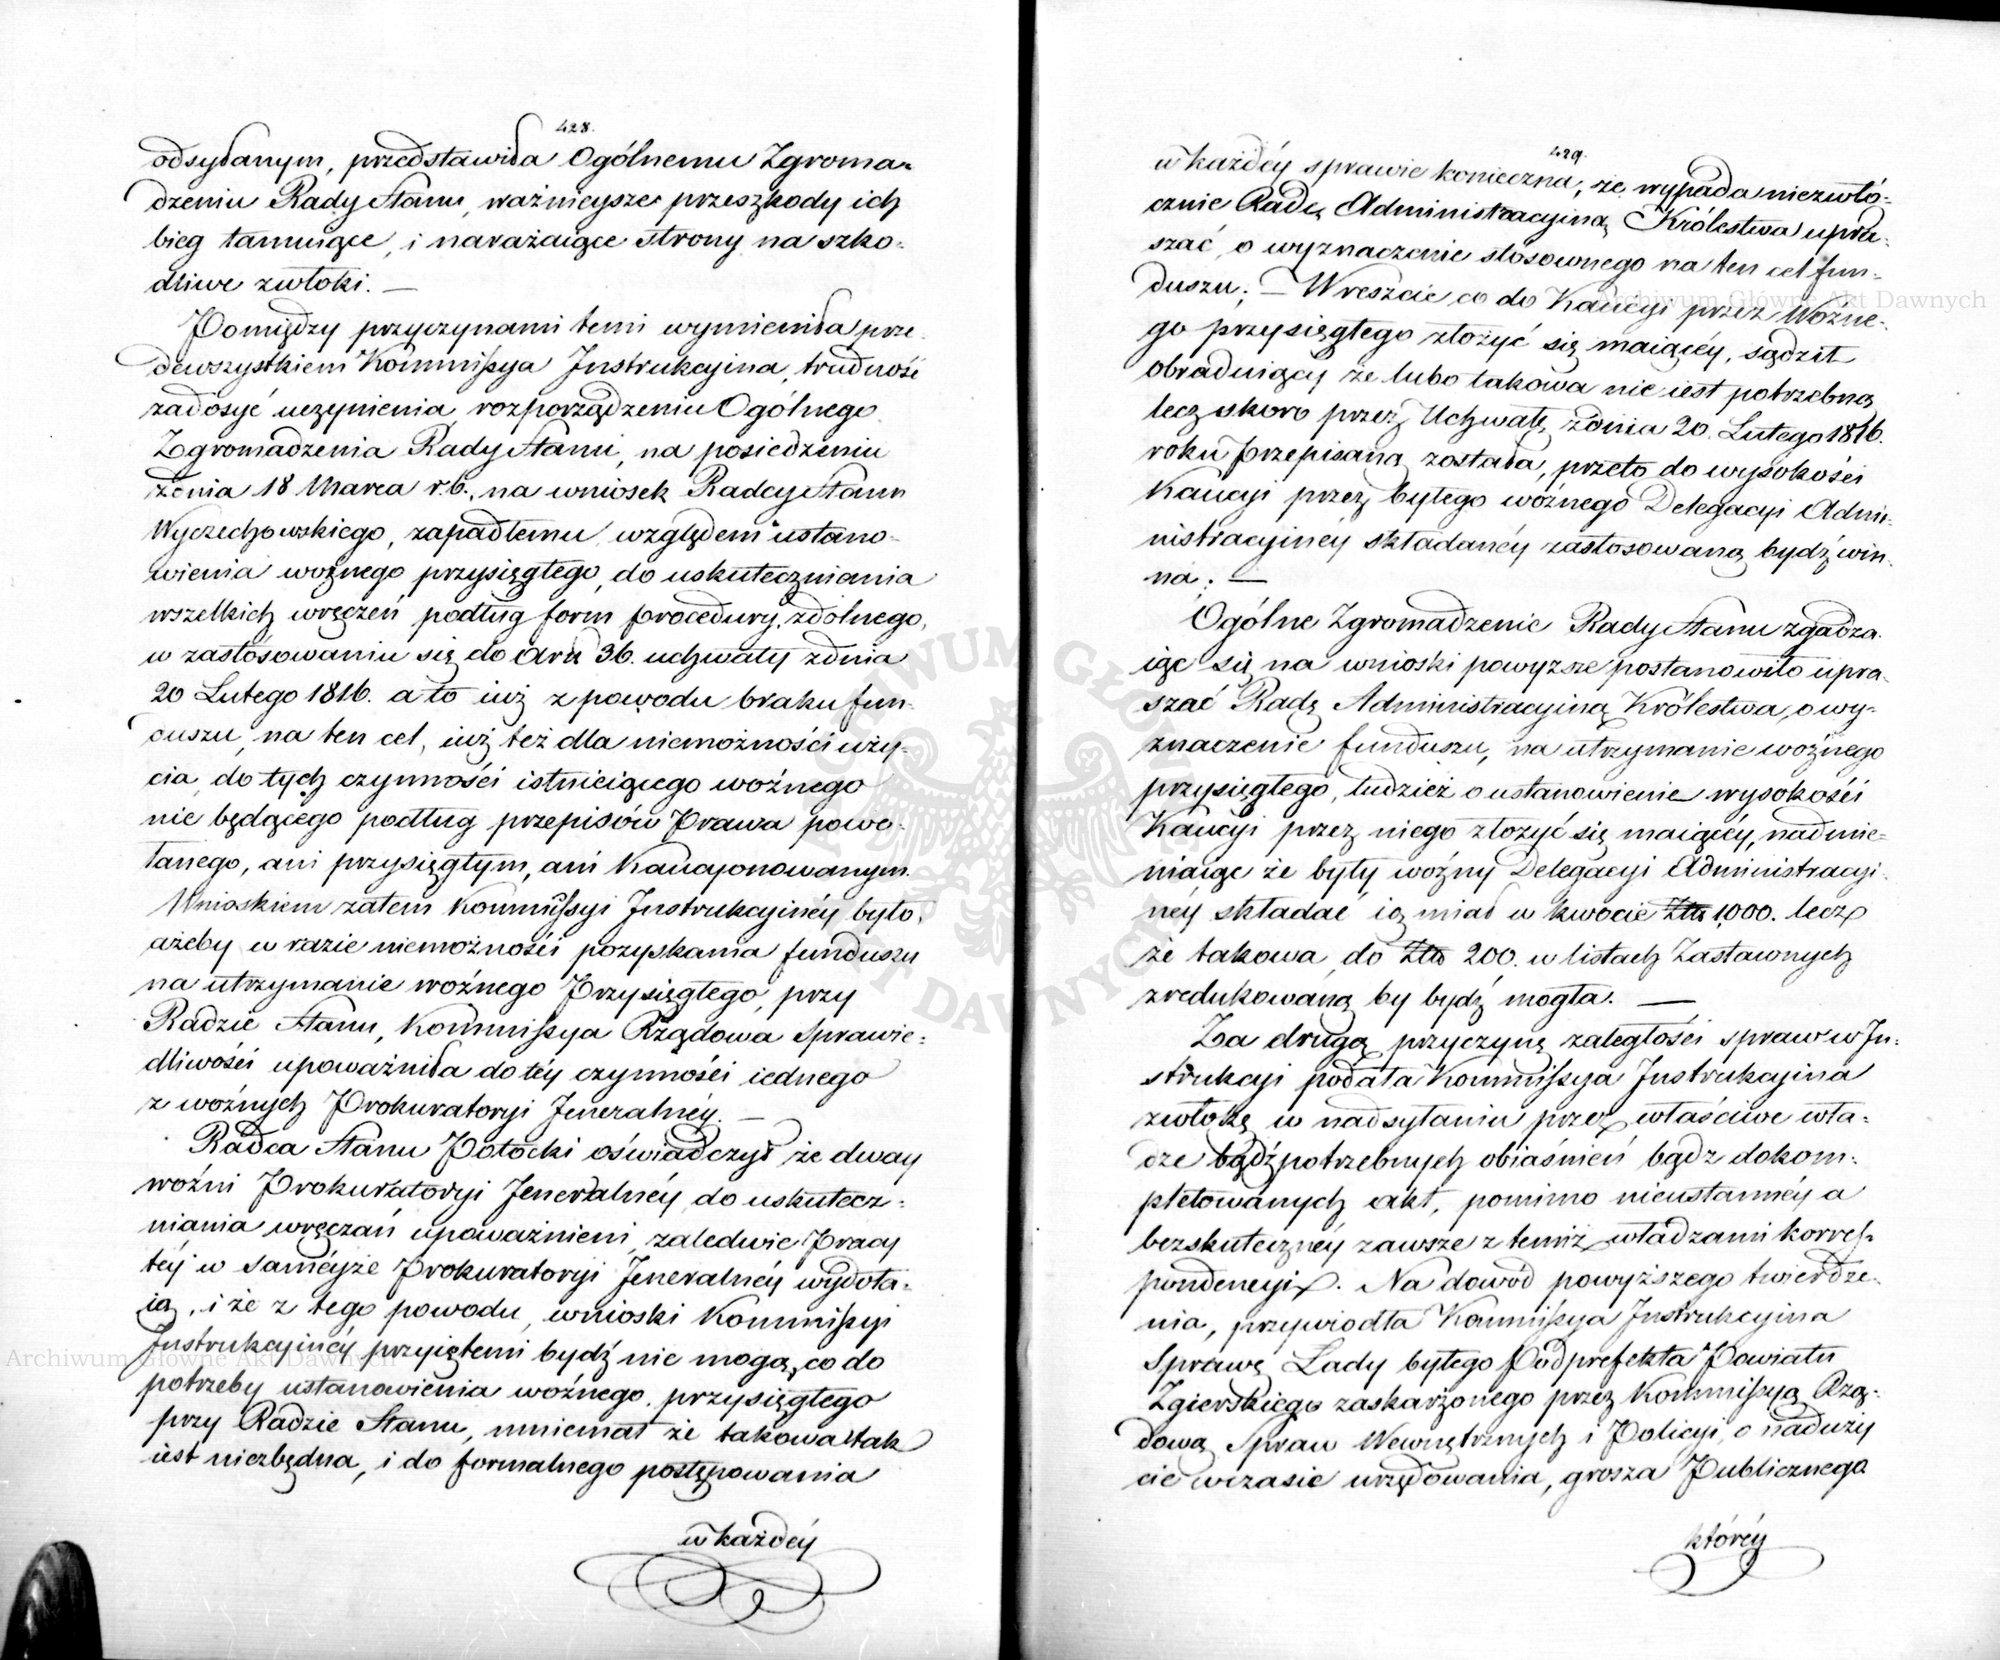 428.
odsyłanym, przedstawiła Ogólnemu Zgroma=
dzeniu Rady Stanu, ważnieysze przeszkody ich
bieg tamuiące, i narażaiące strony na szko=
dliwe zwłoki. —
Pomiędzy przyczynami temi wymieniła prze=
dewszystkiem Kommissya Instrukcyina, trudność
zadosyć uczynienia, rozporządzeniu Ogólnego
Zgromadzenia Rady Stanu, na posiedzeniu
zdnia 18 Marca r.b., na wniosek Radcy Stanu
Wyczechowskiego, zapadłemu, względem ustano=
wienia woznego przysięgłego, do uskuteczniania
wszelkich wręczeń podług form procedury, zdolnego,
w zastósowaniu się do Artu 36. uchwały zdnia
20 Lutego 1816. a to iuż z powodu braku fun=
duszu, na ten cel, iuż też dla niemożności uży=
cia, do tych czynności istnieiącego woźnego
nie będącego podług przepisów Prawa powo=
łanego, ani przysięgłym, ani Kaucyonowanym.
Wnioskiem zatem Kommissyi Instrukcyinéy było,
ażeby w razie niemożności pozyskania funduszu
na utrzymanie woźnego Przysięgłego, przy
Radzie Stanu, Kommissya Rządowa Sprawie=
dliwości upoważniła do téy czynności iednego
z woźnych Prokuratoryi Jeneralnéy. —
Radca Stanu Potocki oświadczył że dway
woźni Prokuratoryi Jeneralnéy, do uskutecz=
niania wręczań upoważnieni, zaledwie Pracy
téy w saméyże Prokuratoryi Jeneralnéy wydoła=
ią, i że z tego powodu, wnioski Kommissyi
Instrukcyinéy przyiętemi bydź nie mogą, co do
potrzeby ustanowienia woźnego, przysięgłego
przy Radzie Stanu, mniemał że takowa tak
iest niezbędna, i do formalnego postępowania
w każdéy
429.
w każdéy sprawie konieczna, że wypada niezwłó=
cznie Radę Administracyiną Królestwa upra=
szać, o wyznaczenie stósownego na ten cel fun=
duszu; — Wreszcie co do Kaucyi przez Wóźne=
go przysięgłego złożyć się maiącéy, sądził
obraduiący że lubo takowa nie iest potrzebną
lecz skoro przez Uchwałę zdnia 20. Lutego 1816.
roku przepisaną została, przeto do wysokości
Kaucyi przez byłego woźnego Delegacyi Admi=
nistracyinéy składanéy zastosowaną bydź win=
na. —
Ogólne Zgromadzenie Rady Stanu zgadza=
iąc się na wnioski powyższe postanowiło upra=
szać Radę Administracyiną Królestwa, o wy=
znaczenie funduszu, na utrzymanie woźnego
przysięgłego, tudzież o ustanowienie wysokości
Kaucyi przez niego złożyć się maiącéy, nadmie=
niaiąc że były woźny Delegacyi Administracyi=
néy składać ią miał w kwocie Złtd 1,000. lecz
że takowa, do Złtd 200. w listach Zastawnych
zredukowaną by bydź mogła. —
Za drugą przyczynę zaległości spraw w In=
strukcyi podała Kommissya Instrukcyina
zwłokę w nadsyłaniu przez właściwe wła=
dze bądź potrzebnych obiaśnień bądz dokom=
pletowanych akt, pomimo nieustannéy a
bezskutecznéy zawsze z temiż władzami korres=
pondencyi. Na dowód powyższego twierdze=
nia, przywiodła Kommissya Instrukcyina
Sprawę Lady byłego Podprefekta Powiatu
Zgierskiego zaskarżonego przez Kommissyą Rzą=
dową Spraw Wewnętrznych i Policyi, o naduży
cie w czasie urzędowania, grosza Publicznego
któréy
Archiwum Główne Akt Dawnych
Archiwum Główne Akt Dawnych
ARCHIWUM GŁÓWNE AKT DAWNYCH